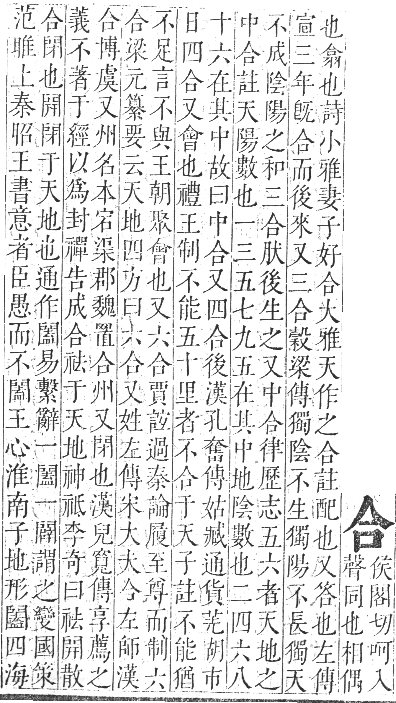 合
侯閤切呵入
聲同也相偶
也翕也詩小雅妻子好合大雅天作之合註配也又答也左傳
宣三年旣合而後來又三合穀梁傳獨陰不生獨陽不長獨天
不成陰陽之和三合肰後生之又中合律歷志五六者天地之
中合註天陽數也一三五七九五在其中地陰數也二四六八
十六在其中故曰中合又四合後漢孔奮傳姑藏通貨羌胡市
日四合又會也禮王制不能五十里者不合于天子註不能猶
不足言不與王朝聚會也又六合賈誼過秦論履至尊而制六
合梁元纂要云天地四方曰六合又姓左傳宋大夫合左師漢
合博虞又州名本宕渠郡魏置合州又閉也漢兒寬傳享薦之
義不著于經以爲封禪告成合祛于天地神祇李奇曰祛開散
合閉也開閉于天地也通作闔易繫辭一闔一闢謂之變國策
范雎上秦昭王書意者臣愚而不闔王心淮南子地形闔四海